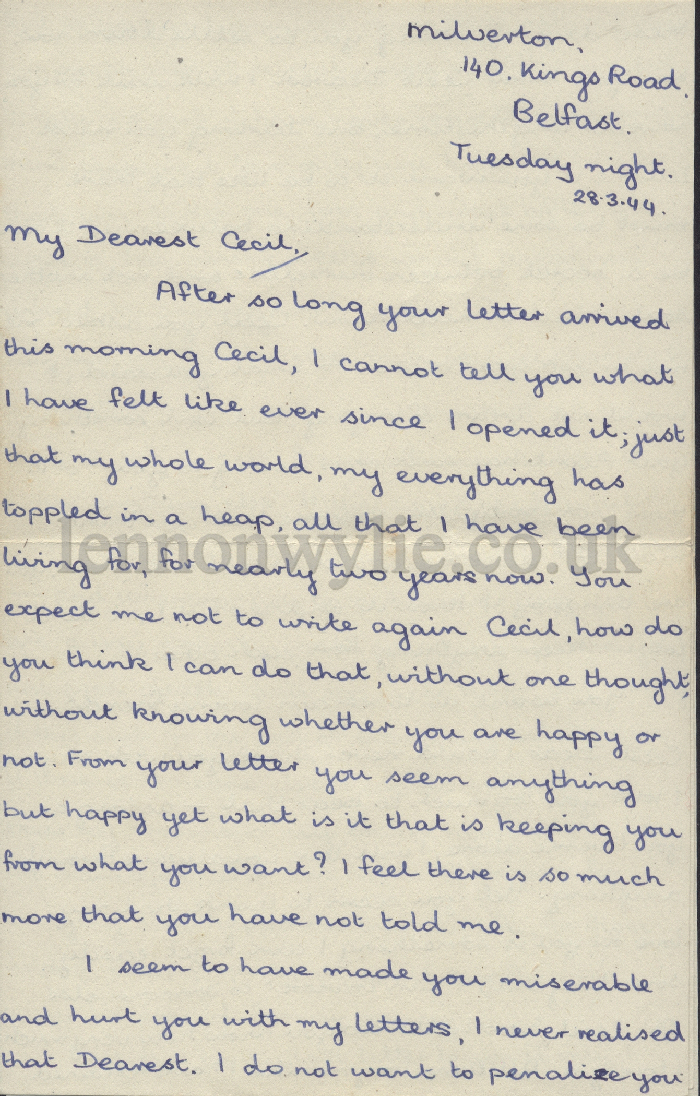 Milverton,
140. Kings Road.
Belfast.
Tuesday night.
28.3.44.
My Dearest Cecil,
After so long your letter arrived
this morning Cecil, I cannot tell you what
I have felt like ever since I opened it; just
that my whole world, my everything has
toppled in a heap, all that I have been
lennonwylie.co.uk
living for, for nearly two years now. You
expect me not to write again Cecil, how do
you think I can do that, without one thought,
without knowing whether you are happy or
not. From your letter you seem anything
but happy yet what is it that is keeping you
from what you want? I feel there is so much
more that you have not told me.
I seem to have made you miserable
and hurt you with my letters, I never realised
that Dearest. I do not want to penalize you